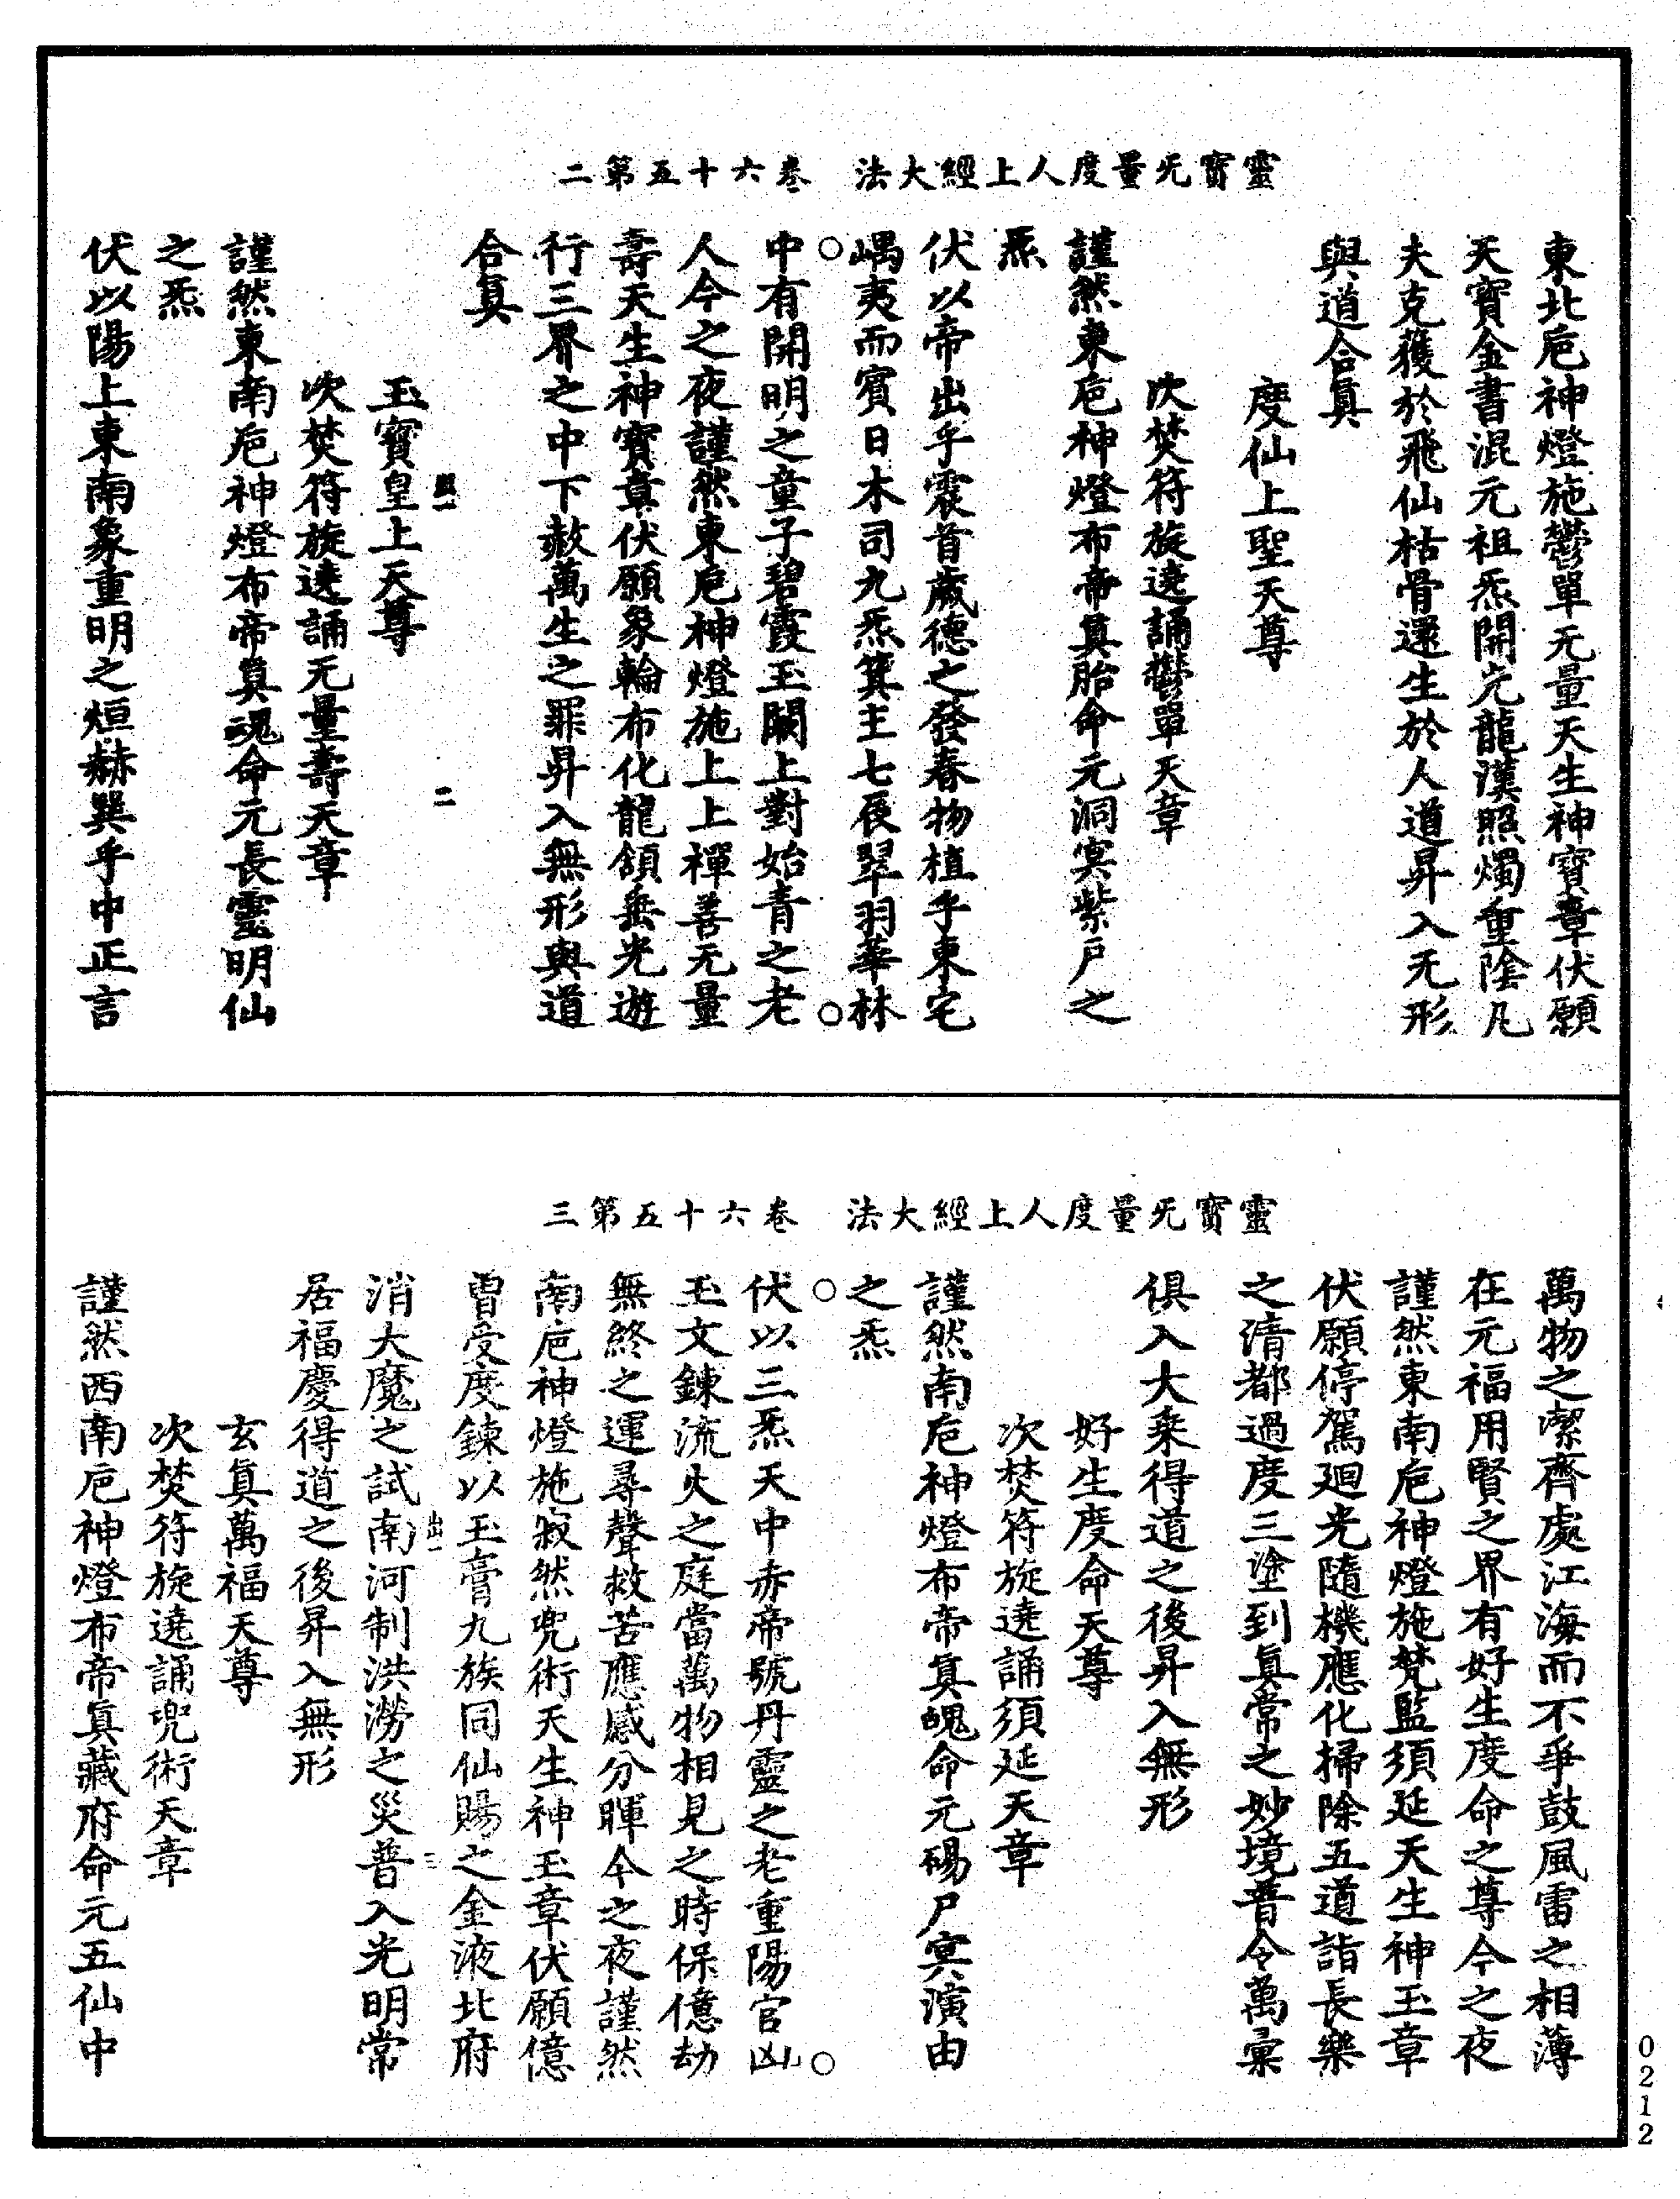 靈寶旡量度人上經大法　卷六十五第二
東北巵神燈施鬱單元量天生神寶章伏願
天寶金書混元祖炁開光龍漢照燭重陰凡
夫克獲於飛仙枯骨還生於人道昇入旡形
與道合真
度仙上聖天尊
次焚符旋遶誦鬱單天章
謹然東巵神燈布帝真胎命元洞冥紫戶之
炁
伏以帝出乎震首歲德之發春物植乎東宅
嵎夷而賓日木司九炁箕主七辰翠羽華林
中有開明之童子碧霞玉闕上對始青之老
人今之夜謹然東巵神燈施上上禪善无量
壽天生神寶章伏願象輪布化龍頷垂光遊
行三界之中下赦萬生之罪昇入無形與道
合真
玉寶皇上天尊
次焚符旋遶誦无量壽天章
謹然東南巵神燈布帝真魂命元長靈明仙
之炁
伏以陽上東南象重明之烜赫巽乎中正言
靈寶旡量度人上經大法　卷六十五第三
萬物之潔齊處江海而不爭鼓風雷之相薄
在元福用賢之界有好生度命之尊今之夜
謹然東南巵神燈施梵監須延天生神玉章
伏願停駕廻光隨機應化掃除五道詣長樂
之清都過度三塗到真常之妙境普令萬彙
俱入大乘得道之後昇入無形
好生度命天尊
次焚符旋遶誦須延天章
謹然南巵神燈布帝真魄命元碭尸冥演由
之炁
伏以三炁天中赤帝號丹靈之老重陽宮内
玉文鍊流火之庭當萬物相見之時保億劫
無終之運尋聲救苦應感分暉今之夜謹然
南巵神燈施寂然兜術天生神玉章伏願億
曽受度鍊以玉膏九族同仙賜之金液北府
消大魔之試南河制洪澇之災普入光明常
居福慶得道之後昇入無形
玄真萬福天尊
次焚符旋遶誦兜術天章
謹然西南巵神燈布帝真藏府命元五仙中
0212